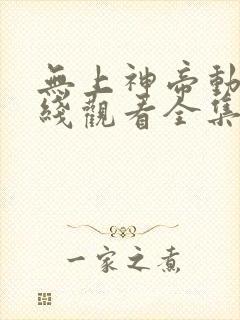 無上神帝動
綫觀看全集
一家之煮